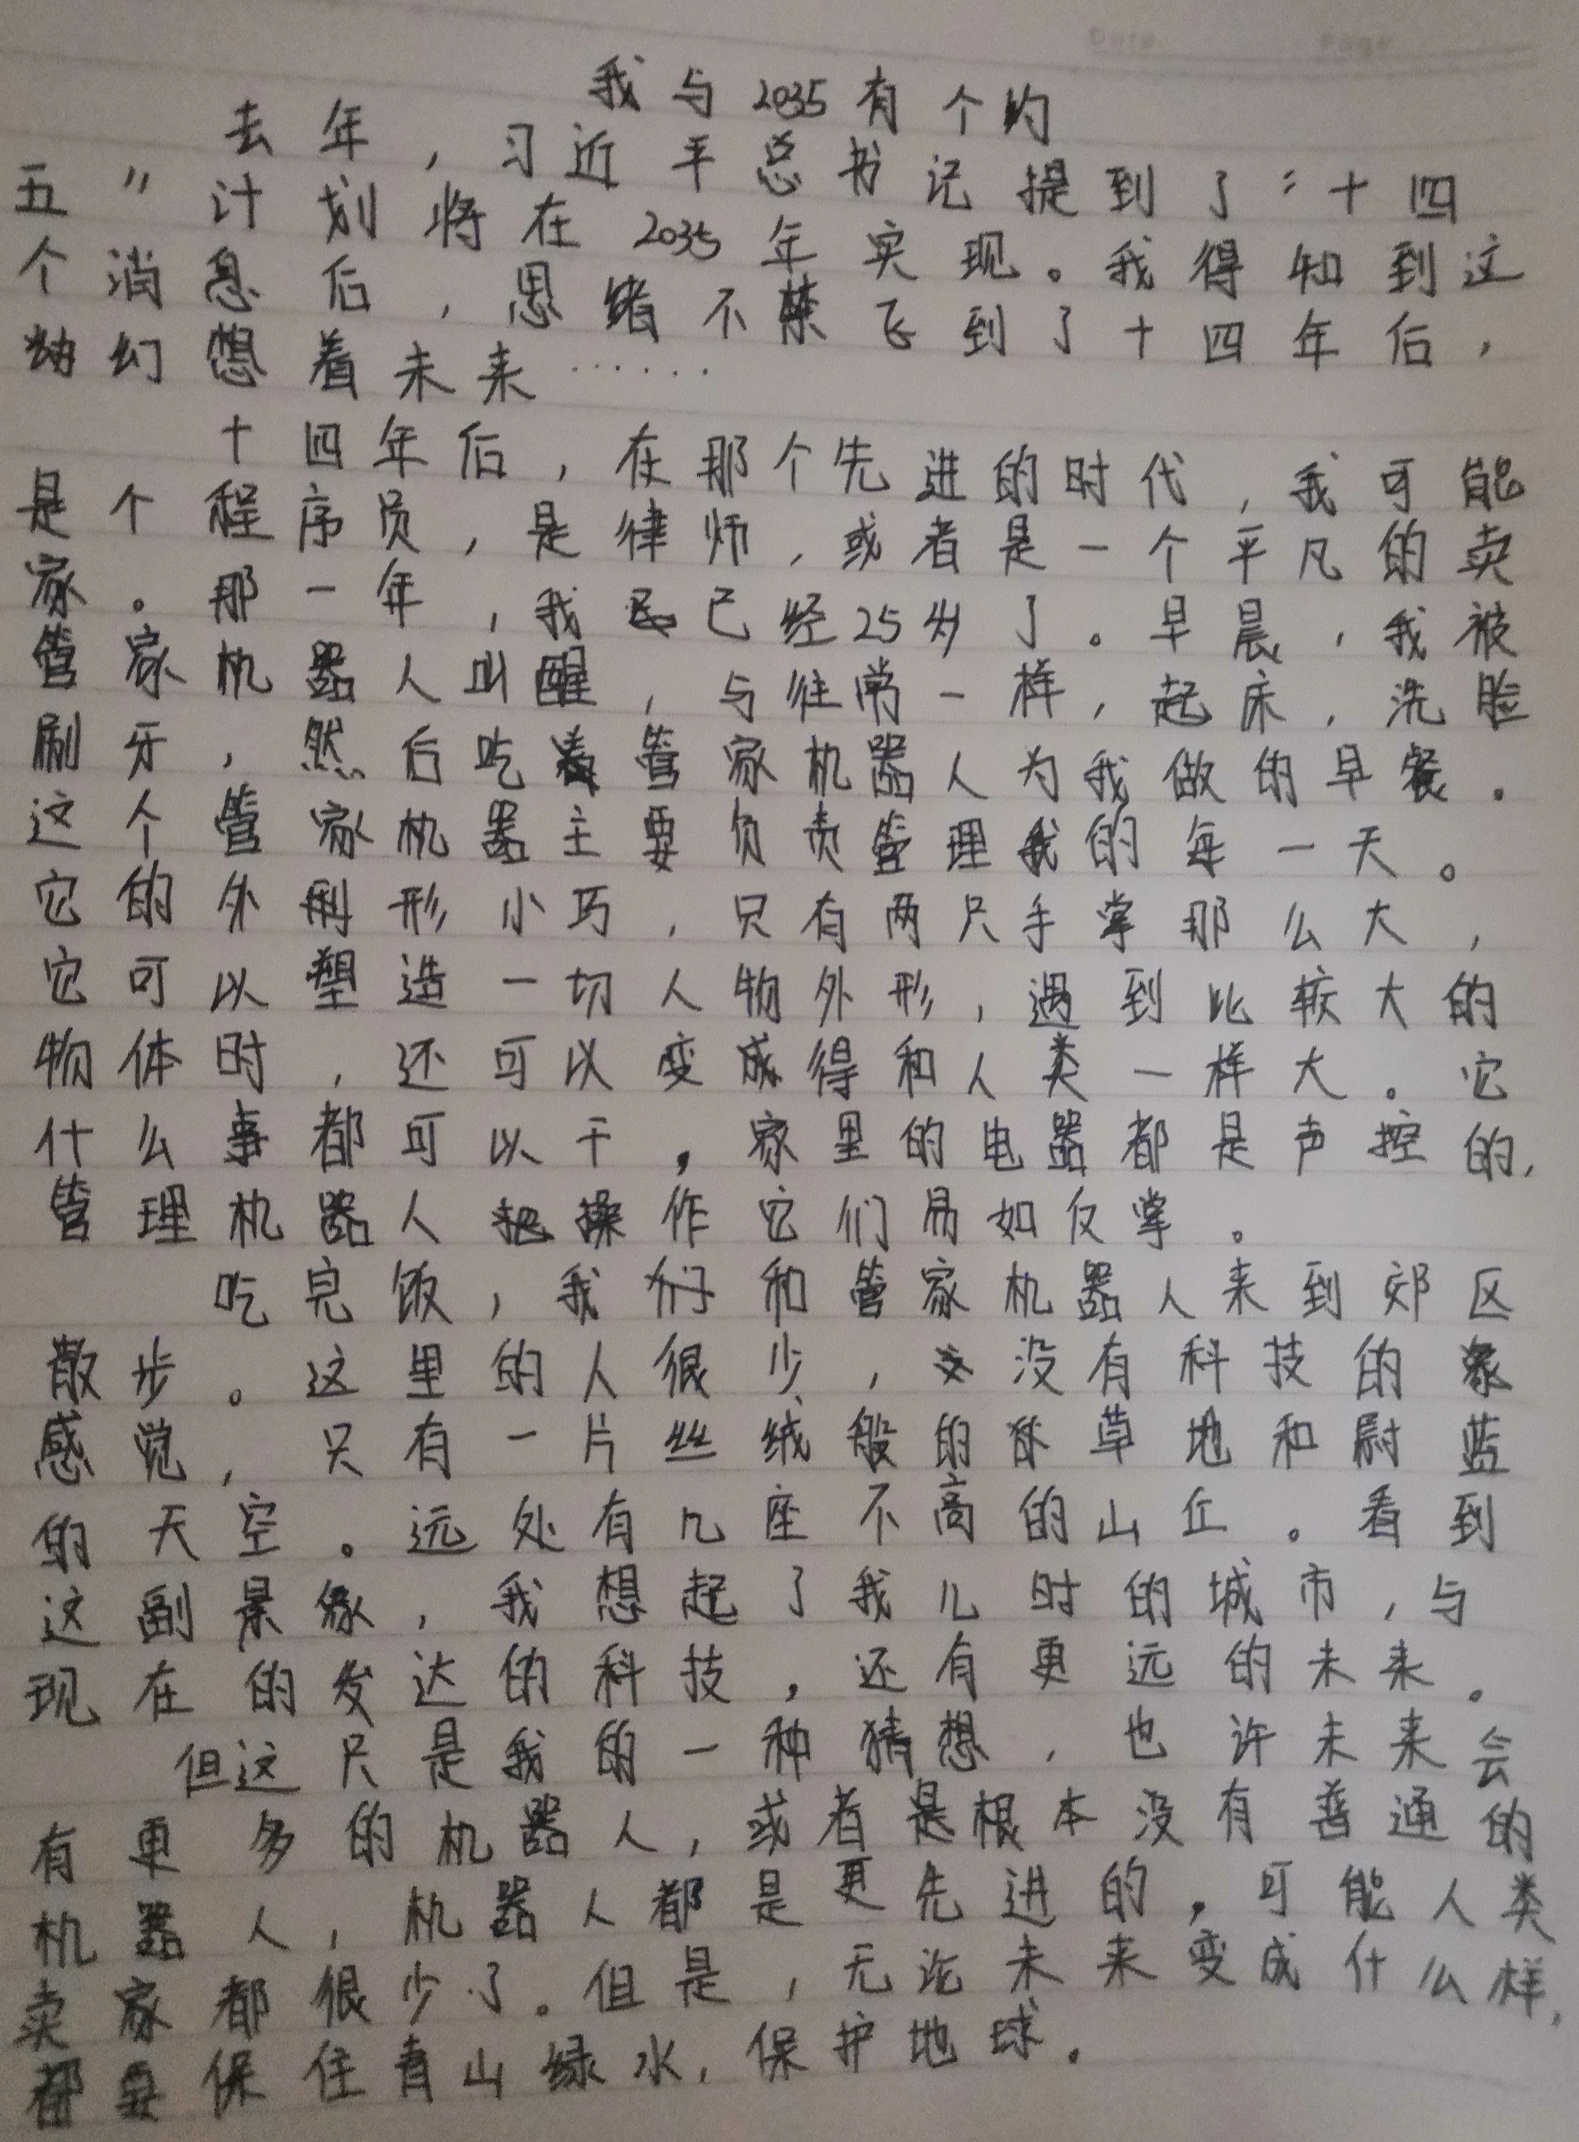 Date Page
我与2035有个约
去年，习近平总书记提到了“十四
五”计划将在2035年实现。我得知到这
个消息后，思绪不禁飞到了十四年后，
幻想着未来……
十四年后，在那个先进的时代，我可能
是个程序员，是律师，或者是一个平凡的卖
家。那一年，我已经25岁了。早晨，我被
管家机器人叫醒，与往常一样，起床，洗脸
刷牙，然后吃着管家机器人为我做的早餐。
这个管家机器主要负责管理我的每一天。
它的外形小巧，只有两只手掌那么大，
它可以塑造一切人物外形，遇到比较大的
物体时，还可以变成得和人类一样大。它
什么事都可以干，家里的电器都是声控的，
管理机器人操作它们易如反掌。
吃完饭，我们和管家机器人来到郊区
散步。这里的人很少，没有科技的
感觉，只有一片丝绒般的草地和尉蓝
的天空。远处有几座不高的山丘。看到
这副景象，我想起了我儿时的城市，与
现在的发达的科技，还有更远的未来。
但这只是我的一种猜想，也许未来会
有更多的机器人，或者是根本没有普通的
机器人，机器人都是更先进的，可能人类
卖家都很少了。但是，无论未来变成什么样，
都要保住青山绿水，保护地球。